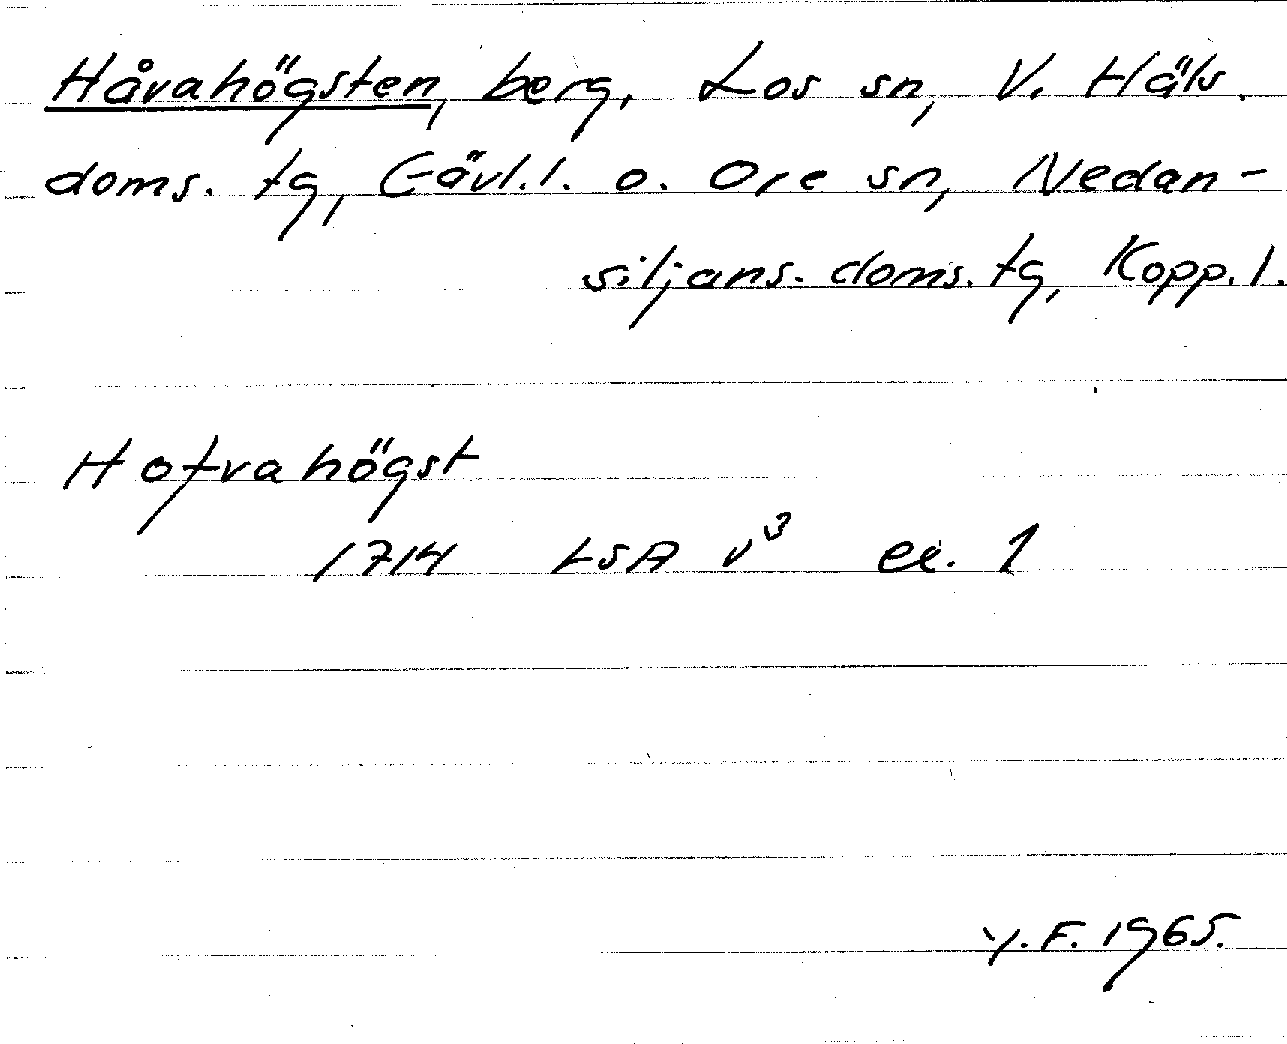 Håvahögsten, berg, Los sn, V. Häls.
doms. tg, Gävl.l. o. Ore sn, Nedan-
siljans. doms. tg, Kopp. l.
Hofvahögst
1714 LSA v³ ex. 1
Y. F. 1965.